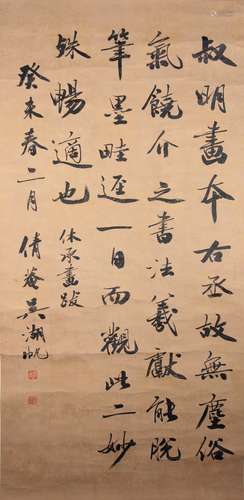 叔明畫本右丞故無塵俗
氣饒介之書法羲獻能脫
筆墨畦逕一日而觀此二妙
殊暢適也
休承畫跋
癸未春二月
倩菴吳湖帆